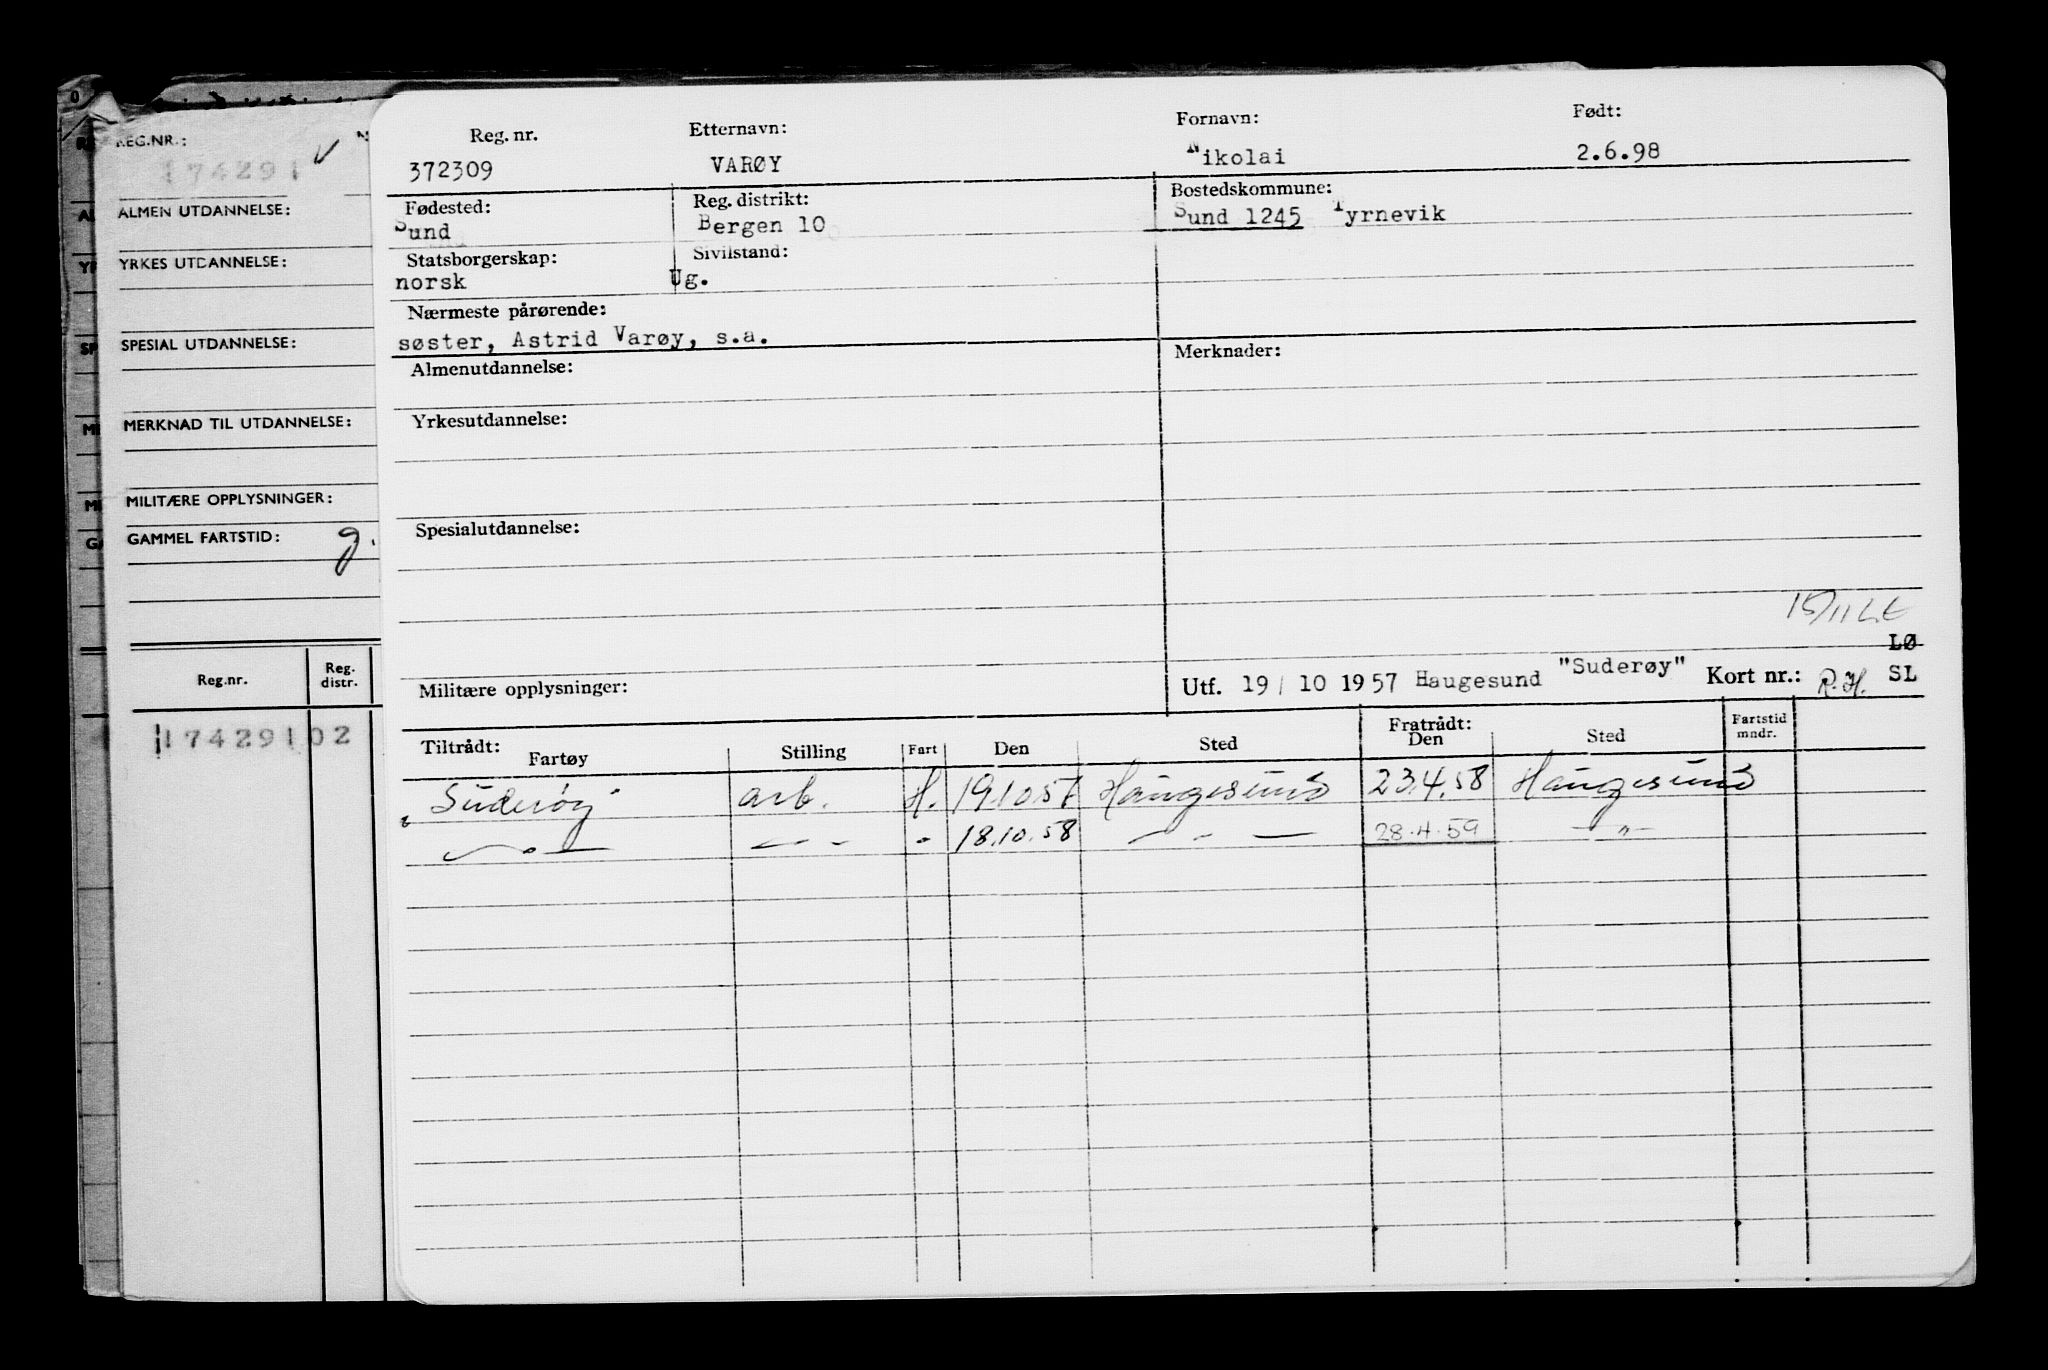 REG.NR.:
174291
ALMEN UTDANNELSE:
YRKES UTDANNELSE:
SPESIAL UTDANNELSE:
MERKNAD TIL UTDANNELSE:
MILITÆRE OPPLYSNINGER:
GAMMEL FARTSTID: g.
Reg.nr. Reg. distr.
174291 02
Reg. nr. Etternavn: Fornavn: Født:
372309 VARØY Nikolai 2.6.98
Fødested: Reg. distrikt: Bostedskommune:
Sund Bergen 10 Sund 1245 Tyrnevik
Statsborgerskap: Sivilstand:
norsk Ug.
Nærmeste pårørende:
søster, Astrid Varøy, s.a.
Almenutdannelse: Merknader:
Yrkesutdannelse:
Spesialutdannelse:
LØ
Militære opplysninger: Utf. 19/ 10 1957 Haugesund "Suderøy" Kort nr.: R.H. SL
Tiltrådt: Fartøy Stilling Fart Den Sted Fratrådt: Den Sted Fartstid mndr.
"Suderøy" arb. H. 19.10.57 Haugesund 23.4.58 Haugesund
— " — — " — " 18.10.58 — " — 28.4.59 — " —